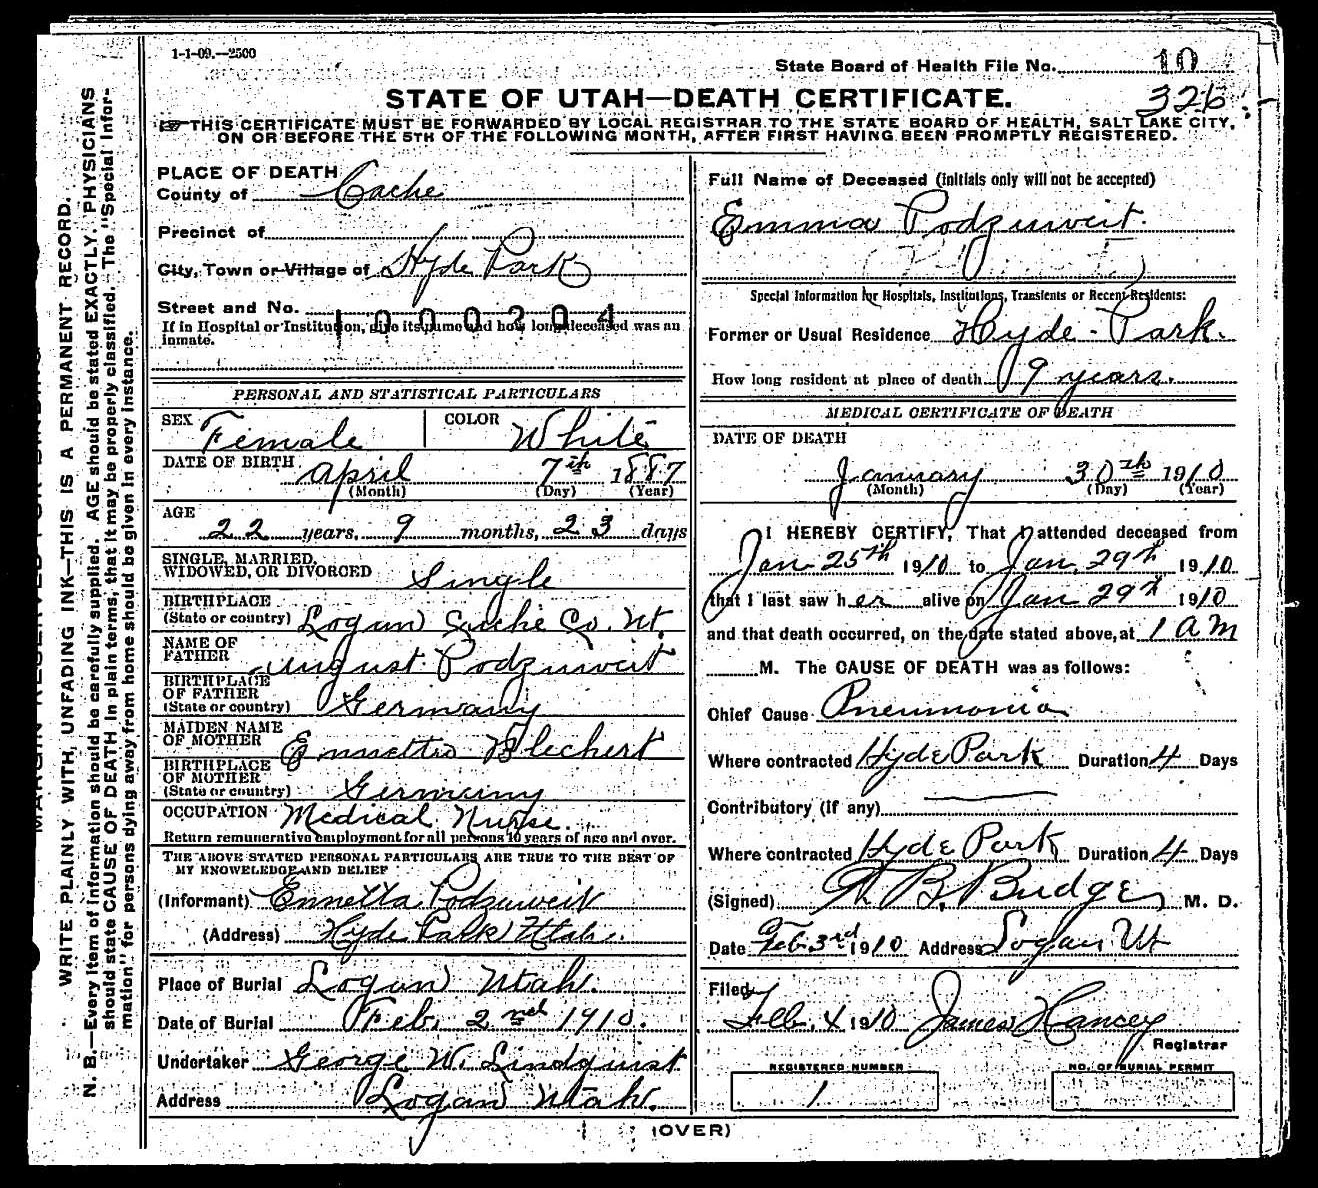 1-1-09.—2500
State Board of Health File No. 10
326
STATE OF UTAH—DEATH CERTIFICATE.
☞THIS CERTIFICATE MUST BE FORWARDED BY LOCAL REGISTRAR TO THE STATE BOARD OF HEALTH, SALT LAKE CITY,
ON OR BEFORE THE 5TH OF THE FOLLOWING MONTH, AFTER FIRST HAVING BEEN PROMPTLY REGISTERED.
WRITE PLAINLY WITH, UNFADING INK—THIS IS A PERMANENT RECORD.
N. B.—Every item of information should be carefully supplied. AGE should be stated EXACTLY. PHYSICIANS
should state CAUSE OF DEATH in plain terms, that it may be properly classified. The "Special Infor-
mation" for persons dying away from home should be given in every instance.
PLACE OF DEATH
County of Cache
Precinct of
City, Town or Village of Hyde Park
Street and No.
1000204
If in Hospital or Institution, give its name and how long deceased was an
inmate.
PERSONAL AND STATISTICAL PARTICULARS
SEX Female COLOR White
DATE OF BIRTH April 7th 1887
(Month) (Day) (Year)
AGE
22 years, 9 months, 23 days
SINGLE, MARRIED,
WIDOWED, OR DIVORCED Single
BIRTHPLACE
(State or country) Logan Cache Co. Ut.
NAME OF
FATHER August Podzuweit
BIRTHPLACE
OF FATHER
(State or country) Germany
MAIDEN NAME
OF MOTHER Blechert
BIRTHPLACE
OF MOTHER
(State or country) Germany
OCCUPATION Medical Nurse.
Return remunerative employment for all persons 10 years of age and over.
THE ABOVE STATED PERSONAL PARTICULARS ARE TRUE TO THE BEST OF
MY KNOWELEDGE AND BELIEF
(Informant) Ennetta Podzuweit
(Address) Hyde Park Utah.
Place of Burial Logan Utah.
Date of Burial Feb. 2nd 1910.
Undertaker George W. Lindquist
Address Logan Utah.
Full Name of Deceased (initials only will not be accepted)
Emma Podzuweit
Special Information for Hospitals, Institutions, Transients or Recent Residents:
Former or Usual Residence Hyde-Park.
How long resident at place of death 9 years.
MEDICAL CERTIFICATE OF DEATH
DATE OF DEATH
January 30th 1910
(Month) (Day) (Year)
I HEREBY CERTIFY, That I attended deceased from
Jan 25th 1910 to Jan 29th 1910
that I last saw her alive on Jan 29th 1910
and that death occurred, on the date stated above, at 1 AM
M. The CAUSE OF DEATH was as follows:
Chief Cause Pneumonia
Where contracted Hyde Park Duration 4 Days
Contributory (if any)
Where contracted Hyde Park Duration 4 Days
(Signed) B. Budge M. D.
Date Feb. 3rd 1910 Address Logan Ut
Filed
Feb. 4 1910 James Hancey
Registrar
REGISTERED NUMBER
1
NO. OF BURIAL PERMIT
(OVER)